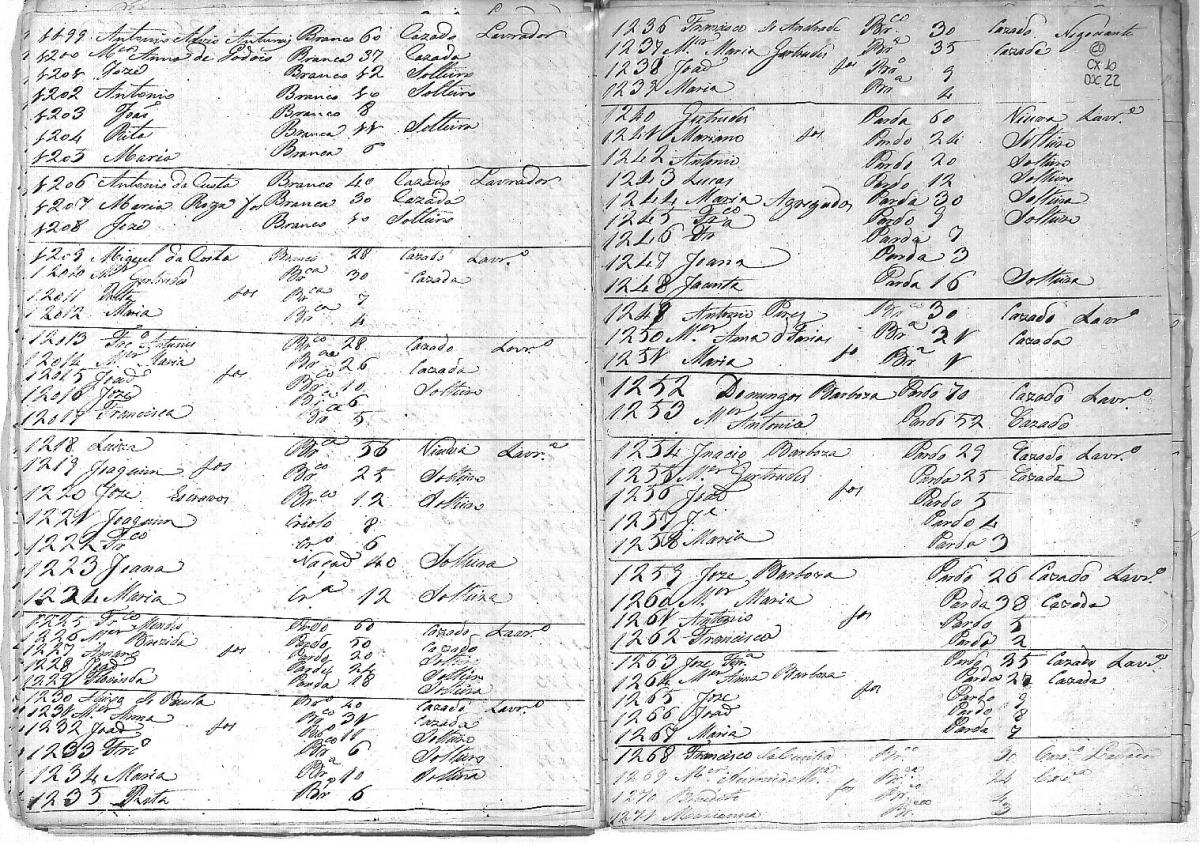 1199 Antonio Antunes Branco 60 Cazado Lavrador
1200 Mer Anna de Godois Branca 37 Cazada
1201 Joze Branco 12 Solteiro
1202 Antonio Branco 10 Solteiro
1203 João Branco 8
1204 Rita Branca 11 Solteira
1205 Maria Branca 6
1206 Antonio da Costa Branco 40 Cazado Lavrador
1207 Maria Roza fos Branca 30 Cazada
1208 Joze Branco 10 Solteiro
1209 Miguel da Costa Branco 28 Cazado Lavr.o
12010 Mer Gertrudes Brca 30 Cazada
12011 fos Brca 7
12012 Maria Brca 4
12013 Antunes Brco 28 Cazado Lavr.o
12014 Mer Maria Brca 26 Cazada
12015 João fos Brco 10 Solteiro
12016 Joze Brco 6
12017 Francisca Brca 5
1218 Luiza Brca 56 Viuva Lavr.a
1219 Joaquim fos Brco 25 Solteiro
1220 Joze Escravos Brco 12 Solteiro
1221 Joaquim Criolo 8
1222 Frco Cro 6
1223 Joana Nação 40 Solteira
1224 Maria Cra 12 Solteira
1225 Frco Mendes Pardo 60 Cazado Lavr.o
1226 Mer 50 Cazado
1227 fos Pardo 20 Solteiro
1228 João Pardo 24 Solteiro
1229 Parda 18 Solteira
1230 de Paula Brco 40 Cazado Lavr.o
1231 Mer Anna Brca 31 Cazada
1232 João fos Brco 11 Solteiro
1233 Brco 6 Solteiro
1234 Maria Bra 10 Solteira
1235 Rita Bra 6
1236 Francisco de Andrade Brco 30 Cazado Negociante
1237 Mer Maria Gertrudes Bra 35 Cazada
1238 João fos Bro 9
1232 Maria Bra 4
CX 10
DOC 22
1240 Gertrudes Parda 60 Viuva Lavr.a
1241 Mariano fos Pardo 24 Solteiro
1242 Antonio Pardo 20 Solteiro
1243 Lucas Pardo 12 Solteiro
1244 Maria Agregados Parda 30 Solteira
1245 Frco Pardo 9 Solteiro
1246 Fra Parda 7
1247 Joana Parda 3
1248 Jacinta Parda 16 Solteira
1248 Antonio Pires Brco 30 Cazado Lavr.o
1250 Mer Anna d Farias Bra 31 Cazada
1251 Maria fo Bra 1
1252 Domingos Barboza Pardo 70 Cazado Lavr.o
1253 Mer Antonia Pardo 52 Cazado
1254 Jnacio Barboza Pardo 29 Cazado Lavr.o
1255 Mer Gertrudes Parda 25 Cazada
1256 João fos Pardo 5
1257 Je Pardo 4
1258 Maria Parda 3
1259 Joze Barboza Pardo 26 Cazado Lavr.o
1260 Mer Maria Parda 38 Cazada
1261 Antonio fos Pardo 5
1262 Francisco Pardo 2
1263 Joze Pardo 35 Cazado Lavr.o
1264 Mer Anna Barboza Parda 27 Cazada
1265 Joze fos Pardo 9
1266 João Pardo 8
1267 Maria Parda 7
1268 Francisco Brco 30 Lavrador
1269 Mer Bra 24
1270 Benedito fos Bro 4
1271 Marianna Br 3